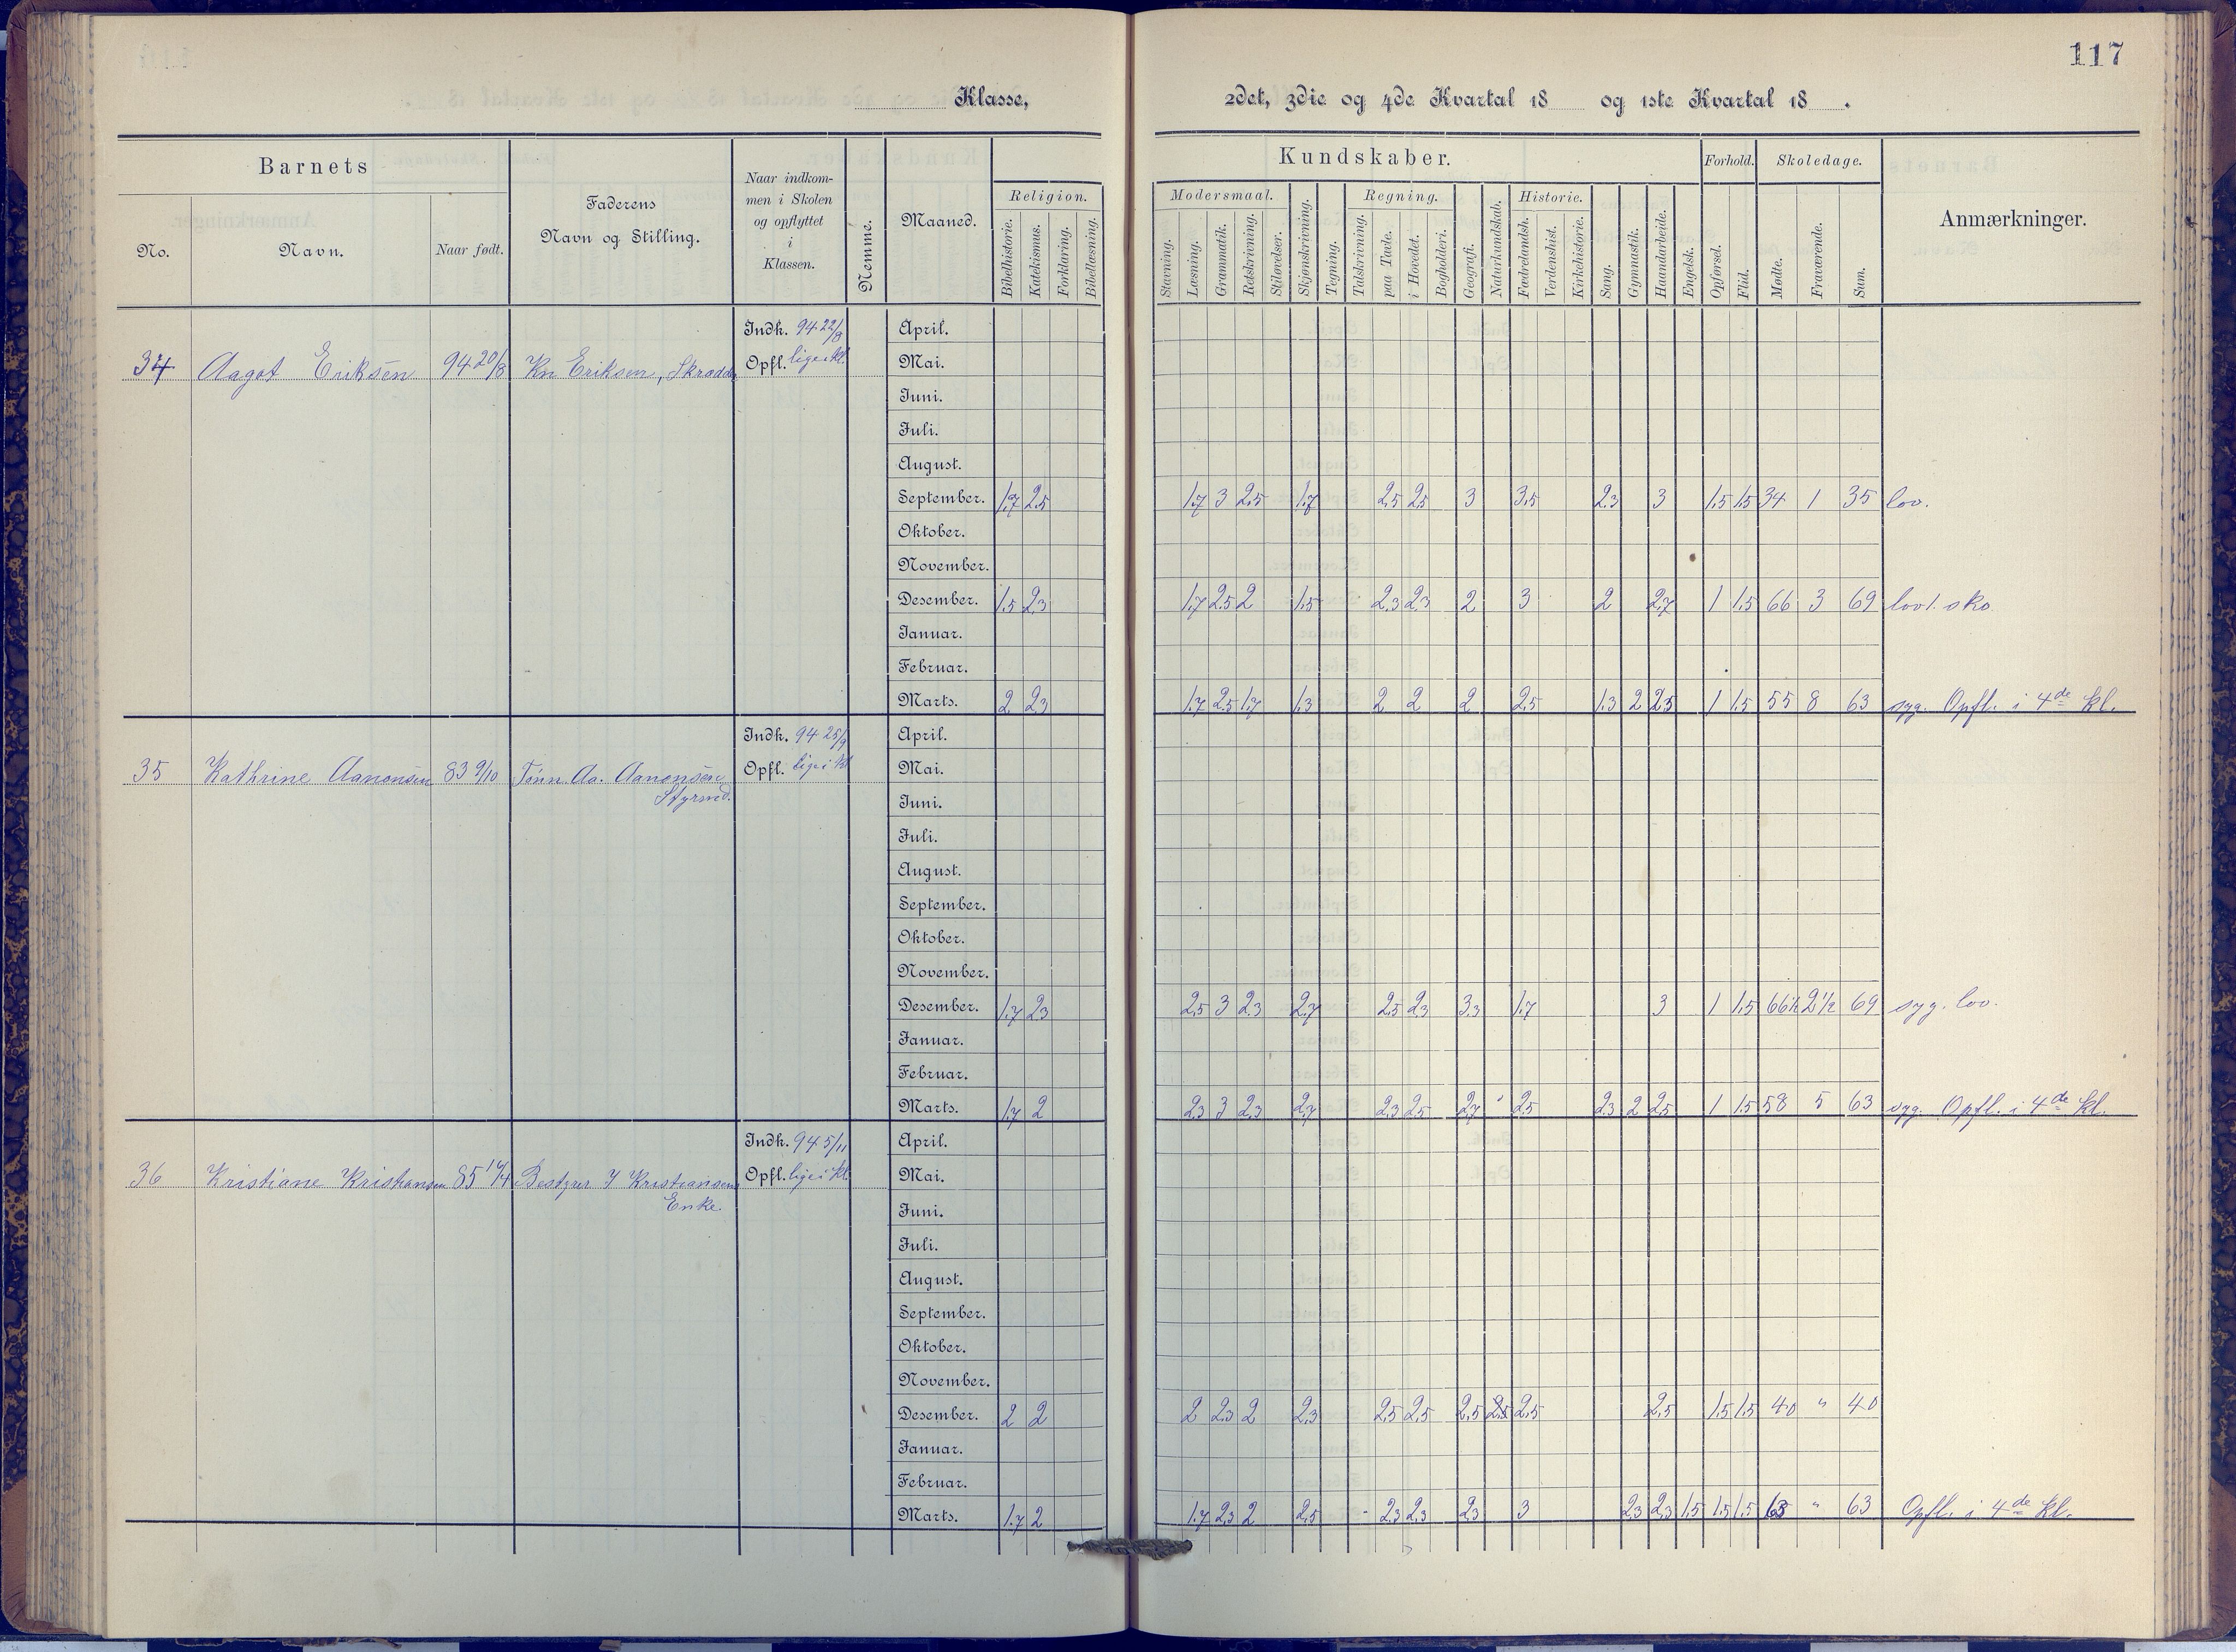 117
Klasse, 2det, 3die og 4de Kvartal 18 og 1ste Kvartal 18 .
Barnets
No.
Navn.
Naar født.
Faderens
Navn og Stilling.
Naar indkom-
men i Skolen
og opflyttet
i
Klassen.
Nemme.
Maaned.
Kundskaber.
Religion.
Bibelhistorie.
Katekismus.
Forklaring.
Bibellæsning.
Modersmaal.
Stavning.
Læsning.
Grammatik.
Retskrivning.
Stiløvelser.
Skjønskrivning.
Tegning.
Regning.
Talskrivning.
paa Tavle.
i Hovedet.
Bogholderi.
Geografi.
Naturkundskab.
Historie.
Fædrelandsh.
Verdenshist.
Kirkehistorie.
Sang.
Gymnastik.
Haandarbeide.
Engelsk.
Forhold.
Opførsel.
Flid.
Skoledage.
Mødte.
Fraværende.
Sum.
Anmærkninger.
Indk. 94 22/8 April.
34 Aagot Eriksen 94 20/8 Kn Eriksen, Skrædder Opfl. lige i kl. Mai.
Juni.
Juli.
August.
September. 1,7 2,5 1,7 3 2,5 1,7 2,5 2,5 3 3,5 2,3 3 1,5 1,5 34 1 35 lov.
Oktober.
November.
Desember. 1,5 2,3 1,7 2,5 2 1,5 2,3 2,3 2 3 2 2,7 1 1,5 66 3 69 lov 1. sko
Januar.
Februar.
Marts. 2 2,3 1,7 2,5 1,7 1,3 2 2 2 2,5 1,3 2 2,5 1 1,5 55 8 63 syg. Opfl. i 4de kl.
Indk. 94 25/9 April.
35 Kathrine Aanonsen 83 9/10 Tønn. Aa. Aanonsen Opfl. lige i kl Mai.
Styrmd.
Juni.
Juli.
August.
September.
Oktober.
November.
Desember. 1,7 2,3 2,5 3 2,3 2,7 2,5 2,3 3,3 1,7 3 1 1,5 66½ 2½ 69 syg. lov.
Januar.
Februar.
Marts. 1,7 2 2,3 3 2,3 2,7 2,3 2,5 2,7 2,5 2,3 2 2,5 1 1,5 58 5 63 syg. Opfl. i 4de kl.
Indk. 94 5/11 April.
36 Kristiane Kristiansen 85 14/4 Bestyrer J Kristiansens Opfl. lige i kl. Mai.
Enke.
Juni.
Juli.
August.
September.
Oktober.
November.
Desember. 2 2 2 2,3 2 2,3 2,5 2,5 2,5 2,5 2,5 2,5 1,5 1,5 40 " 40
Januar.
Februar.
Marts. 1,7 2 1,7 2,3 2 2,5 2,3 2,3 2,3 3 2,3 2,3 1,5 1,5 1,5 63 " 63 Opfl. i 4de kl.